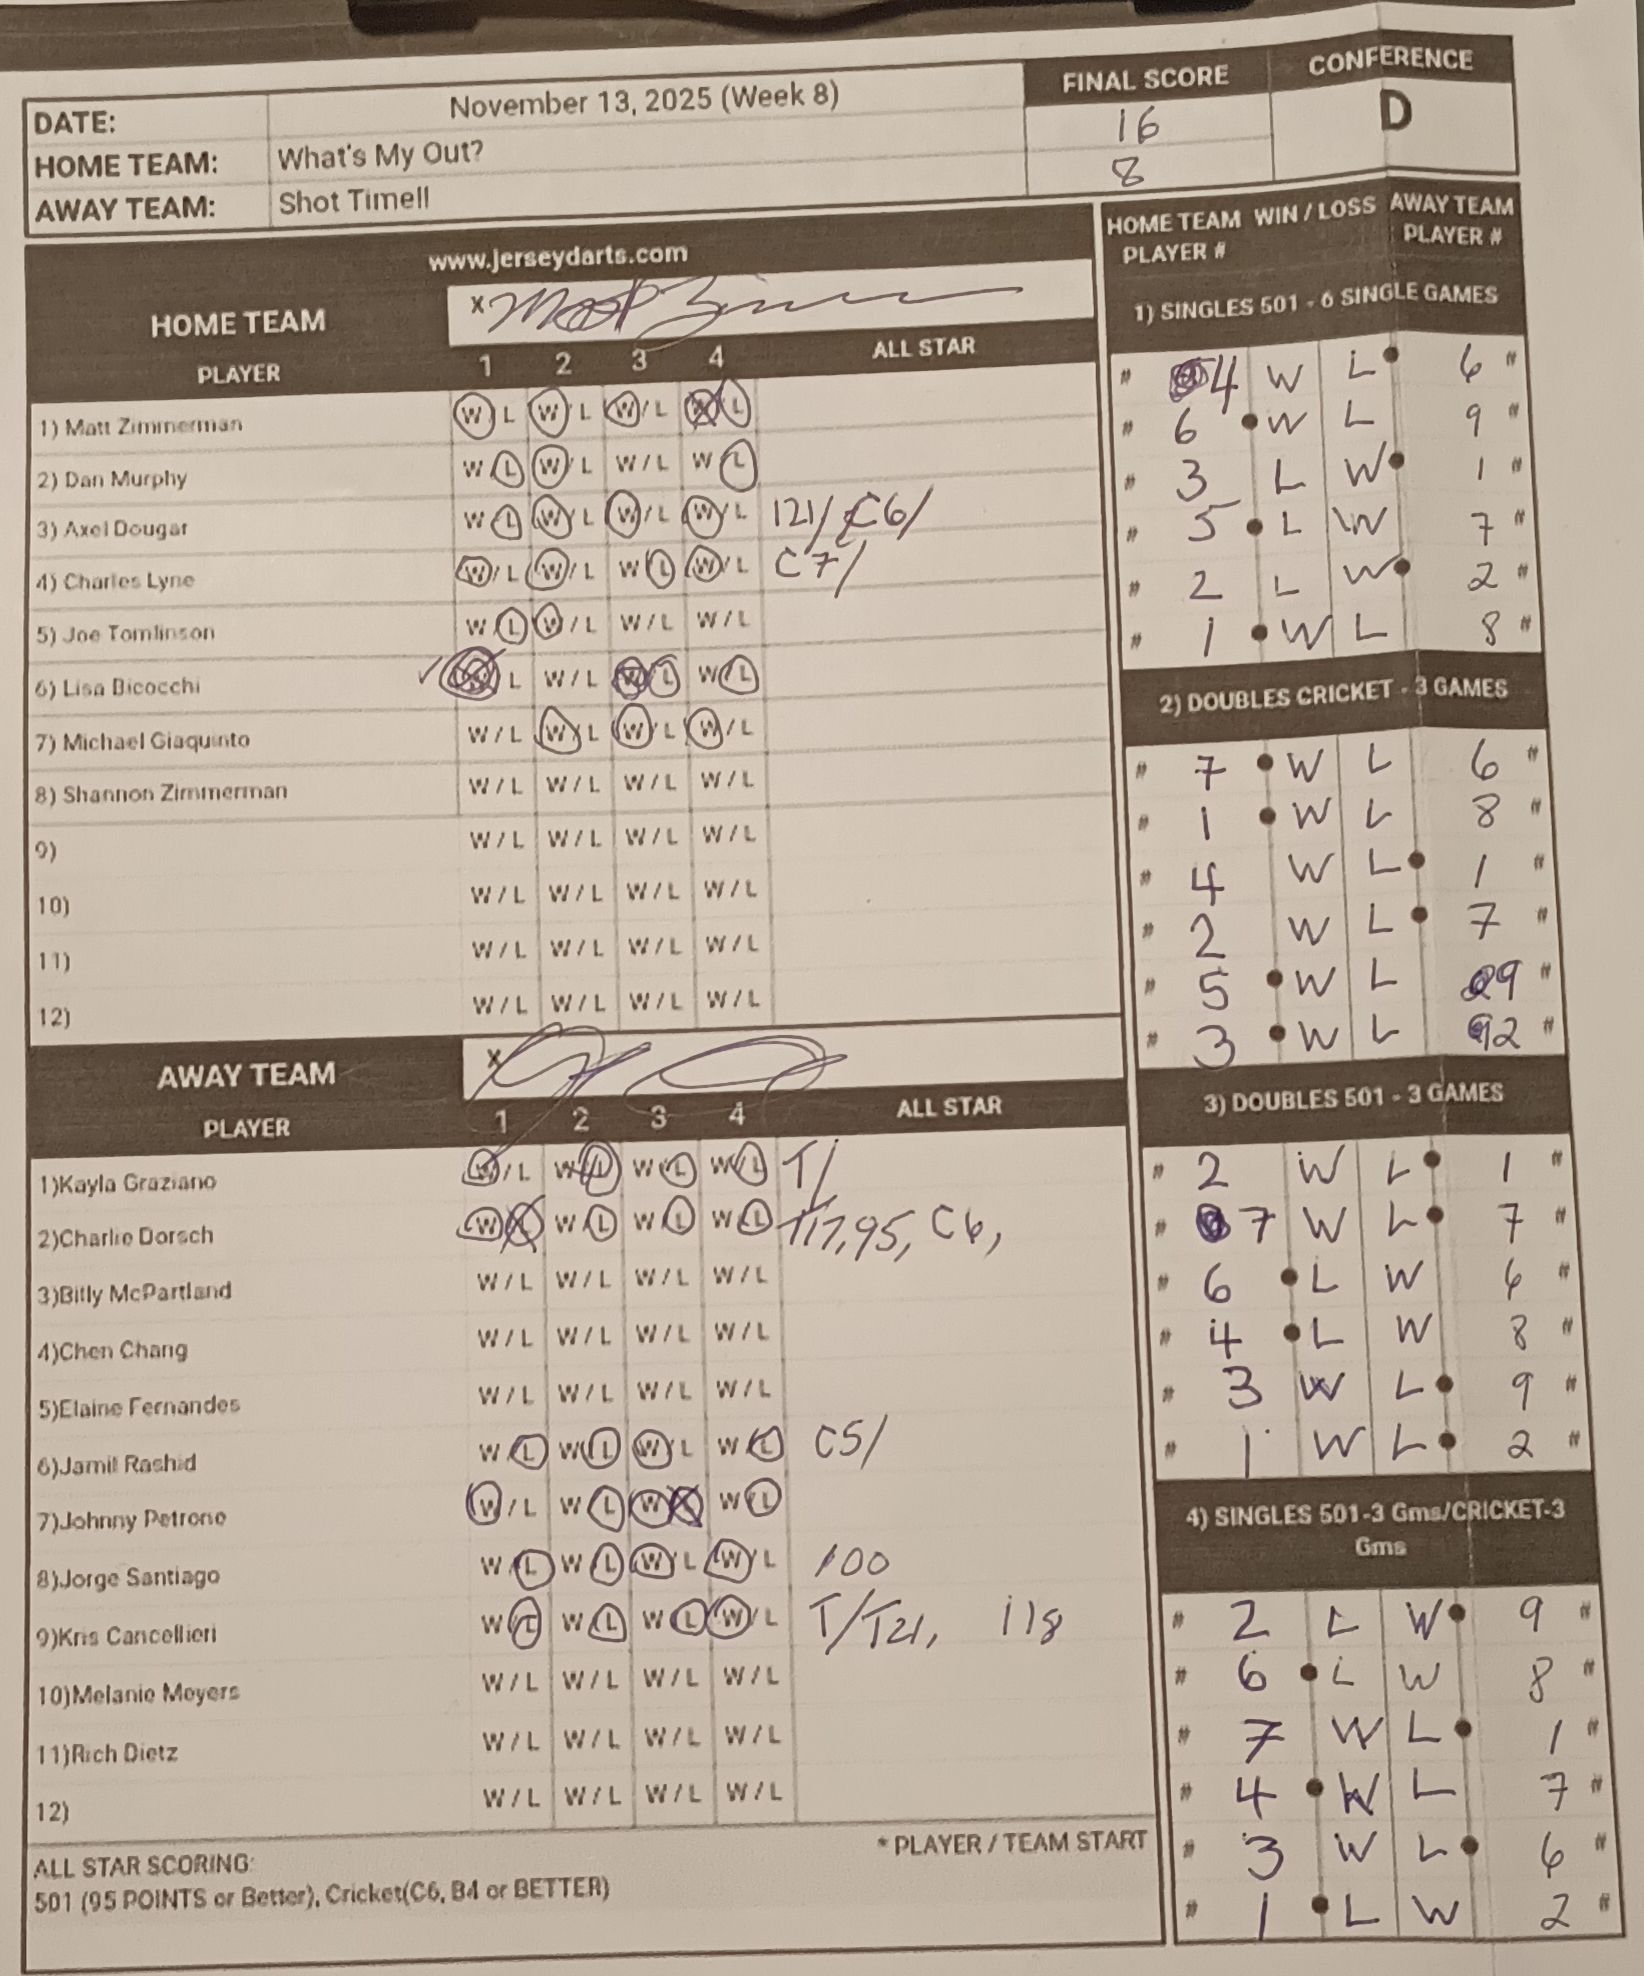 DATE: November 13, 2025 (Week 8)
HOME TEAM: What's My Out?
AWAY TEAM: Shot Time!!
FINAL SCORE CONFERENCE
16 D
8
www.jerseydarts.com
HOME TEAM X
PLAYER 1 2 3 4 ALL STAR
1) Matt Zimmerman W L W L W/L W L
2) Dan Murphy W L W/L W/L W L
3) Axel Dougar W L W/L W/L W/L 121/ C6/
4) Charles Lyne W/L W/L W L W/L C7/
5) Joe Tomlinson W/L W/L W/L W/L
6) Lisa Bicocchi W L W/L W L W L
7) Michael Giaquinto W/L W L W/L W/L
8) Shannon Zimmerman W/L W/L W/L W/L
9) W/L W/L W/L W/L
10) W/L W/L W/L W/L
11) W/L W/L W/L W/L
12) W/L W/L W/L W/L
AWAY TEAM X
PLAYER 1 2 3 4 ALL STAR
1)Kayla Graziano W/L W L W L W L T/
2)Charlie Dorsch W L W L W L W L T17, 95, C6,
3)Billy McPartland W/L W/L W/L W/L
4)Chen Chang W/L W/L W/L W/L
5)Elaine Fernandes W/L W/L W/L W/L
6)Jamil Rashid W L W L W/L W L C5/
7)Johnny Petrone W/L W L W L W L
8)Jorge Santiago W L W L W/L W/L 100
9)Kris Cancellieri W L W L W L W/L T/T21, 118
10)Melanie Meyers W/L W/L W/L W/L
11)Rich Dietz W/L W/L W/L W/L
12) W/L W/L W/L W/L
* PLAYER / TEAM START
ALL STAR SCORING:
501 (95 POINTS or Better), Cricket(C6, B4 or BETTER)
HOME TEAM WIN / LOSS AWAY TEAM
PLAYER # PLAYER #
1) SINGLES 501 - 6 SINGLE GAMES
# 4 W L 6 #
# 6 W L 9 #
# 3 L W 1 #
# 5 L W 7 #
# 2 L W 2 #
# 1 W L 8 #
2) DOUBLES CRICKET - 3 GAMES
# 7 W L 6 #
# 1 W L 8 #
# 4 W L 1 #
# 2 W L 7 #
# 5 W L 9 #
# 3 W L 2 #
3) DOUBLES 501 - 3 GAMES
# 2 W L 1 #
# 7 W L 7 #
# 6 L W 6 #
# 4 L W 8 #
# 3 W L 9 #
# 1 W L 2 #
4) SINGLES 501-3 Gms/CRICKET-3
Gms
# 2 L W 9 #
# 6 L W 8 #
# 7 W L 1 #
# 4 W L 7 #
# 3 W L 6 #
# 1 L W 2 #